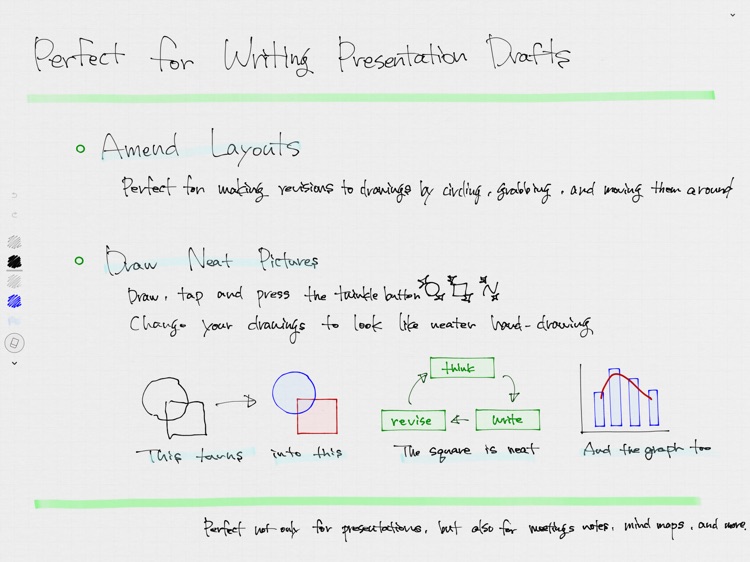 Perfect for Writing Presentation Drafts
Amend Layouts
Perfect for making revisions to drawings by circling, grabbing, and moving them around
Draw Neat Pictures
Draw, tap and press the twinkle button
Change your drawings to look like neater hand-drawing
think
revise
write
This turns into this
The square is neat
And the graph too
Perfect not only for presentations, but also for meetings notes, mind maps, and more.